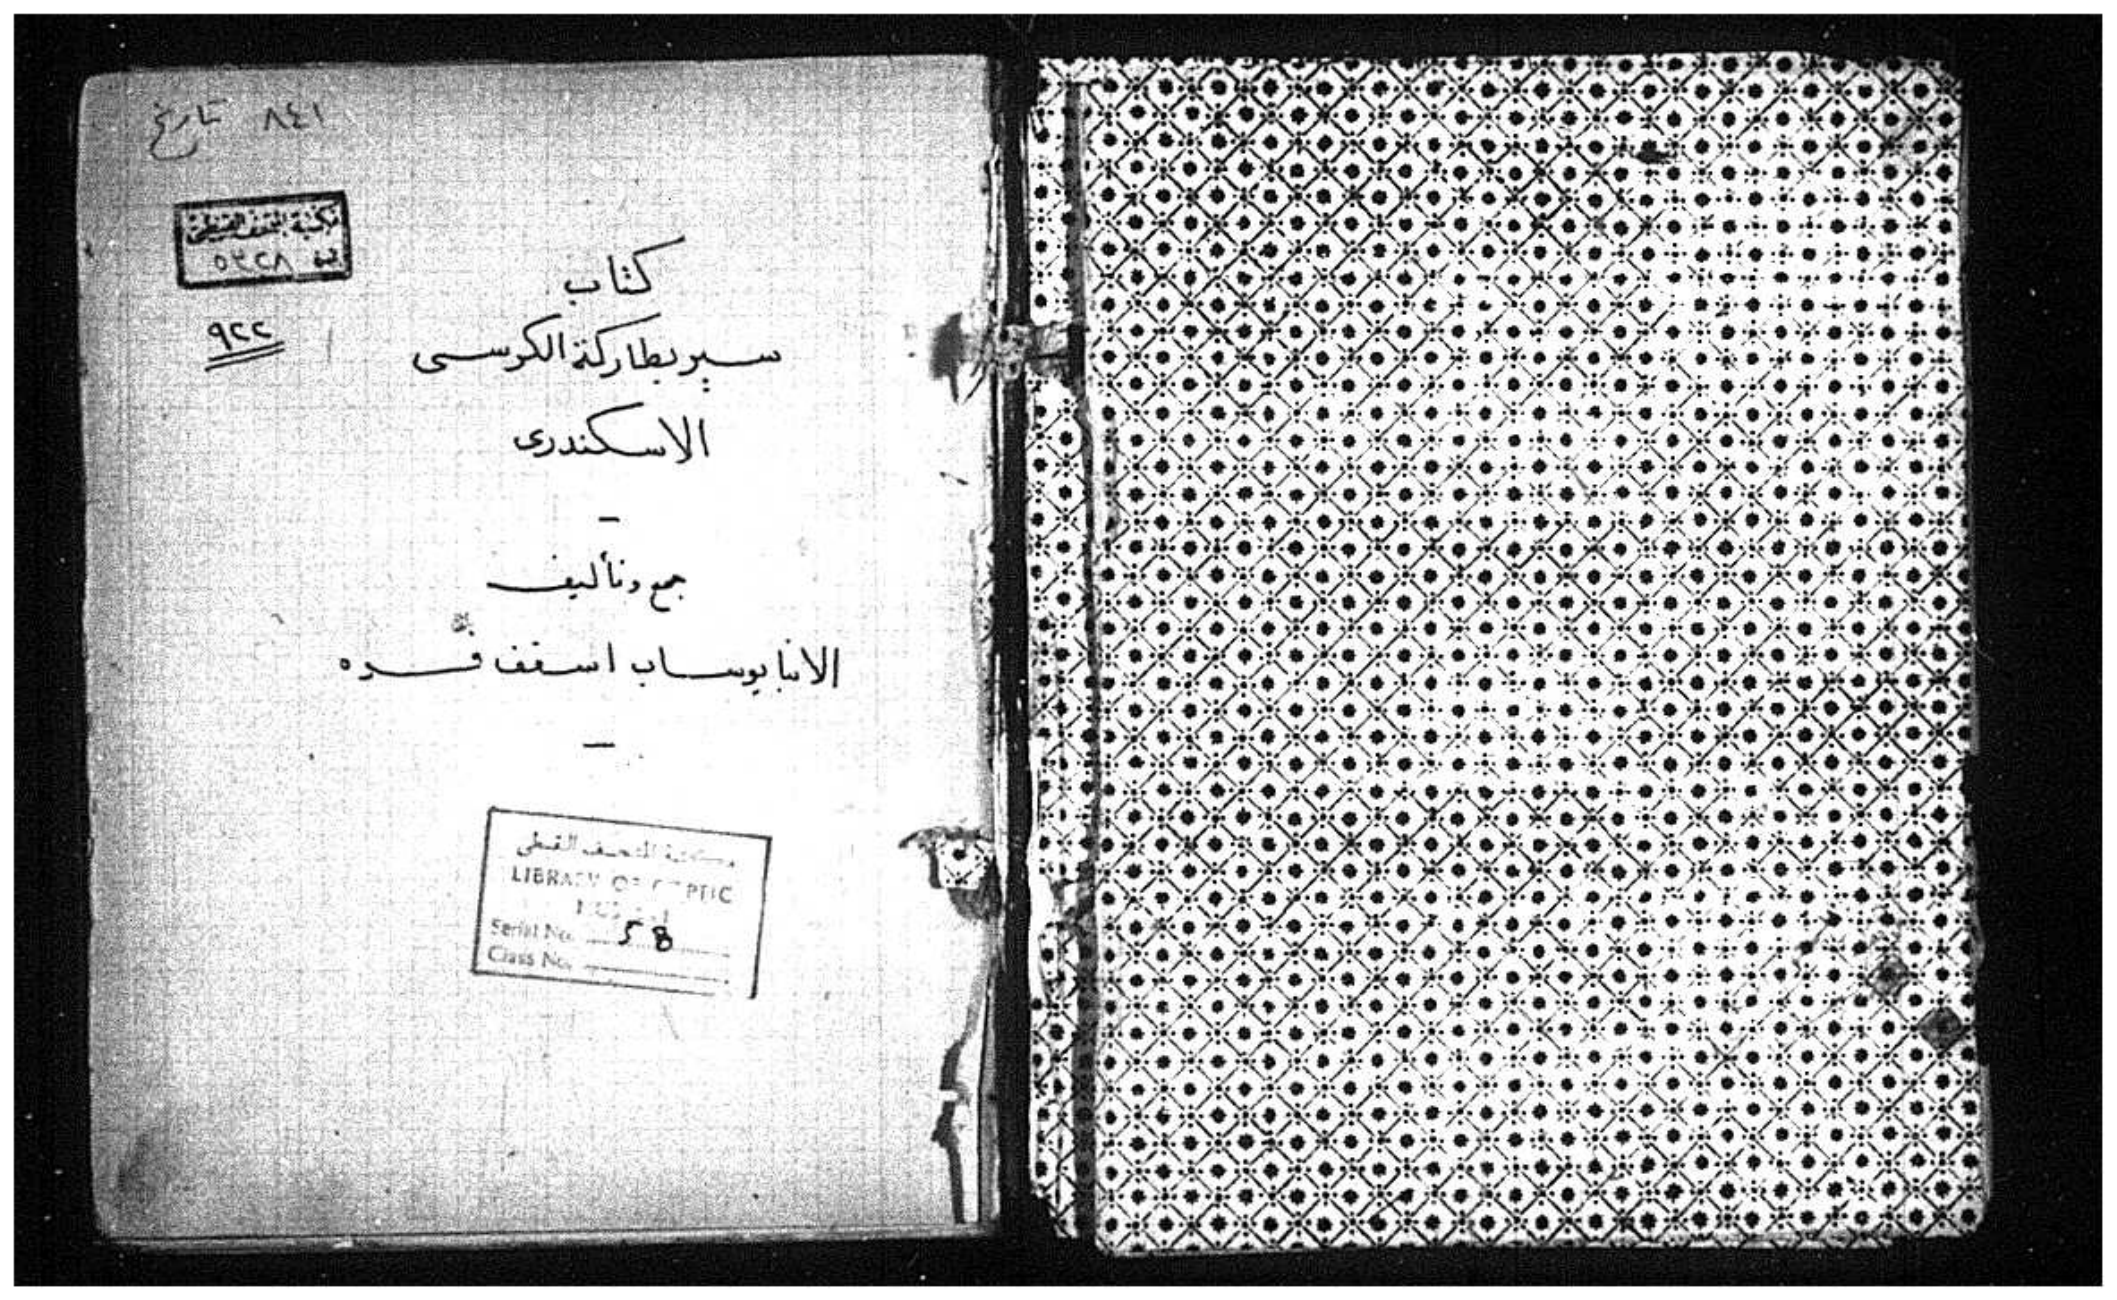 ٨٤١ تاريخ
مكتبة المتحف القبطى
٥٣٢٨
٩٢٢
كتاب
سير بطاركة الكرسى
الاسكندرى
جمع وتأليف
الانبا يوساب اسقف فوه
مكتبة المتحف القبطى
LIBRARY OF COPTIC
Serial No. 58
Class No.